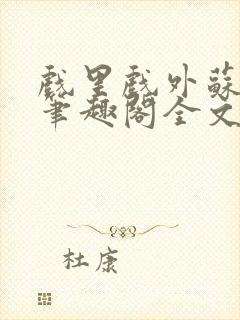 戲里戲外蘇
筆趣閣全文
杜康